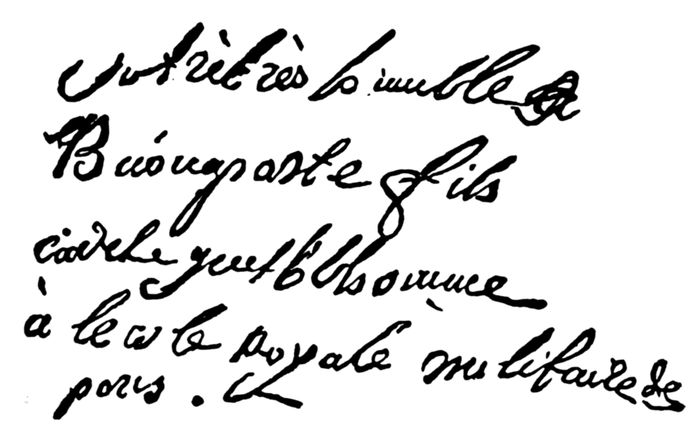 votre très humble &
Buonaparte fils
cadete gentilshomme
à lecole royale militaire de
paris.